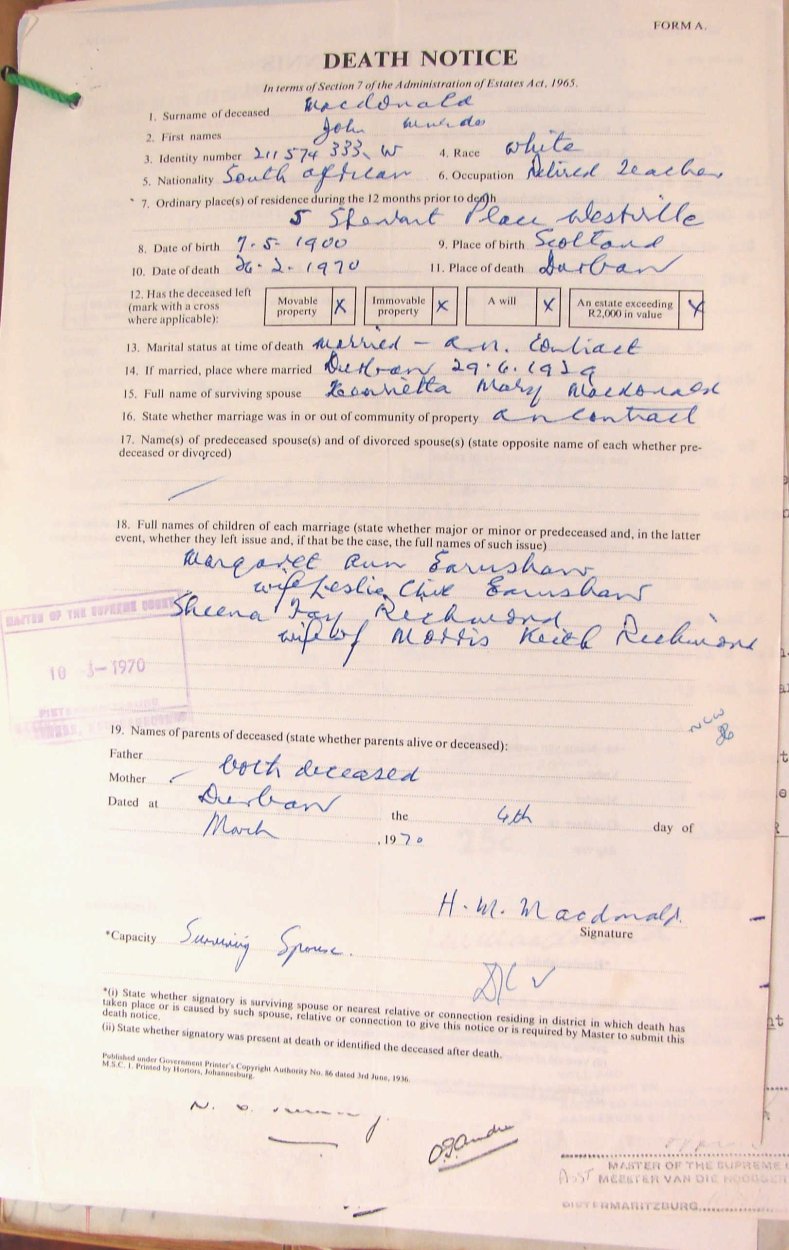 FORM A.
DEATH NOTICE
In terms of Section 7 of the Administration of Estates Act, 1965.
1. Surname of deceased Macdonald
2. First names John
3. Identity number 211 574 333 W 4. Race White
5. Nationality South African 6. Occupation Retired Teacher
* 7. Ordinary place(s) of residence during the 12 months prior to death
5 Place Westville
8. Date of birth 7.5.1900 9. Place of birth Scotland
10. Date of death 26.2.1970 11. Place of death Durban
12. Has the deceased left (mark with a cross where applicable): Movable property X Immovable property X A will X An estate exceeding R2,000 in value X
13. Marital status at time of death Married – a.n. Contract
14. If married, place where married Durban 29.6.19
15. Full name of surviving spouse Henrietta Mary Macdonald
16. State whether marriage was in or out of community of property a n Contract
17. Name(s) of predeceased spouse(s) and of divorced spouse(s) (state opposite name of each whether pre-
deceased or divorced)
18. Full names of children of each marriage (state whether major or minor or predeceased and, in the latter
event, whether they left issue and, if that be the case, the full names of such issue)
Margaret Ann Earnshaw
wife Leslie Clive Earnshaw
Sheena Fay Richmond
wife of Morris Keith Richmond
MASTER OF THE SUPREME COURT
10 -3- 1970
19. Names of parents of deceased (state whether parents alive or deceased):
Father
Mother both deceased
Dated at Durban the 4th day of
March , 1970
H. M. Macdonald.
Signature
*Capacity Surviving Spouse.
*(i) State whether signatory is surviving spouse or nearest relative or connection residing in district in which death has
taken place or is caused by such spouse, relative or connection to give this notice or is required by Master to submit this
death notice.
(ii) State whether signatory was present at death or identified the deceased after death.
Published under Government Printer's Copyright Authority No. 86 dated 3rd June, 1936.
M.S.C. 1. Printed by Hortors, Johannesburg.
MASTER OF THE SUPREME
MEESTER VAN DIE HOOGGER
PIETERMARITZBURG